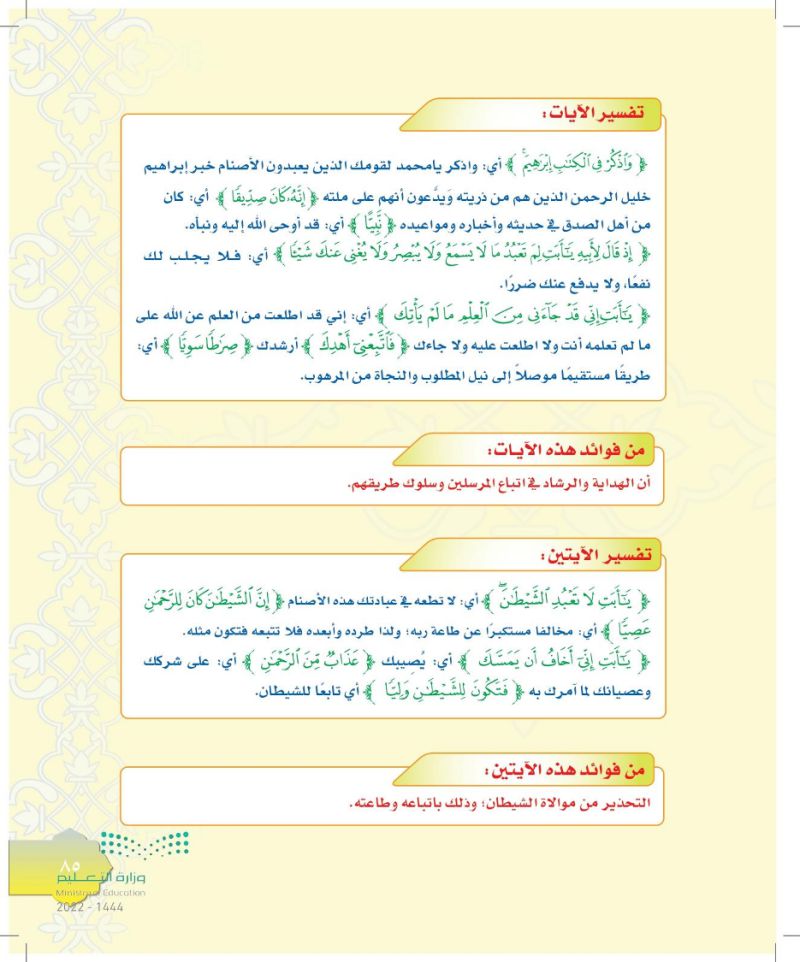 تفسير الآيات:
﴿ وَٱذْكُرْ فِى ٱلْكِتَٰبِ إِبْرَٰهِيمَ ﴾ أي: واذكر يامحمد لقومك الذين يعبدون الأصنام خبر إبراهيم
خليل الرحمن الذين هم من ذريته وَيدَّعون أنهم على ملته ﴿ إِنَّهُۥ كَانَ صِدِّيقًا ﴾ أي: كان
من أهل الصدق في حديثه وأخباره ومواعيده ﴿ نَّبِيًّا ﴾ أي: قد أوحى الله إليه ونبأه.
﴿ إِذْ قَالَ لِأَبِيهِ يَٰٓأَبَتِ لِمَ تَعْبُدُ مَا لَا يَسْمَعُ وَلَا يُبْصِرُ وَلَا يُغْنِى عَنكَ شَيْـًٔا ﴾ أي: فـلا يجلب لك
نفعًا، ولا يدفع عنك ضررًا.
﴿ يَٰٓأَبَتِ إِنِّى قَدْ جَآءَنِى مِنَ ٱلْعِلْمِ مَا لَمْ يَأْتِكَ ﴾ أي: إني قد اطلعت من العلم عن الله على
ما لم تعلمه أنت ولا اطلعت عليه ولا جاءك ﴿ فَٱتَّبِعْنِىٓ أَهْدِكَ ﴾ أرشدك ﴿ صِرَٰطًا سَوِيًّا ﴾ أي:
طريقًا مستقيمًا موصلاً إلى نيل المطلوب والنجاة من المرهوب.
من فوائد هذه الآيـات:
أن الهداية والرشاد في اتباع المرسلين وسلوك طريقهم.
تفسير الآيتين:
﴿ يَٰٓأَبَتِ لَا تَعْبُدِ ٱلشَّيْطَٰنَ ۖ ﴾ أي: لا تطعه في عبادتك هذه الأصنام ﴿ إِنَّ ٱلشَّيْطَٰنَ كَانَ لِلرَّحْمَٰنِ
عَصِيًّا ﴾ أي: مخالفا مستكبرًا عن طاعة ربه؛ ولذا طرده وأبعده فلا تتبعه فتكون مثله.
﴿ يَٰٓأَبَتِ إِنِّىٓ أَخَافُ أَن يَمَسَّكَ ﴾ أي: يُصيبك ﴿ عَذَابٌ مِّنَ ٱلرَّحْمَٰنِ ﴾ أي: على شركك
وعصيانك لما آمرك به ﴿ فَتَكُونَ لِلشَّيْطَٰنِ وَلِيًّا ﴾ أي تابعًا للشيطان.
من فوائد هذه الآيتين:
التحذير من موالاة الشيطان؛ وذلك باتباعه وطاعته.
٨٥
وزارة التعـليم
Ministry of Education
2022 - 1444